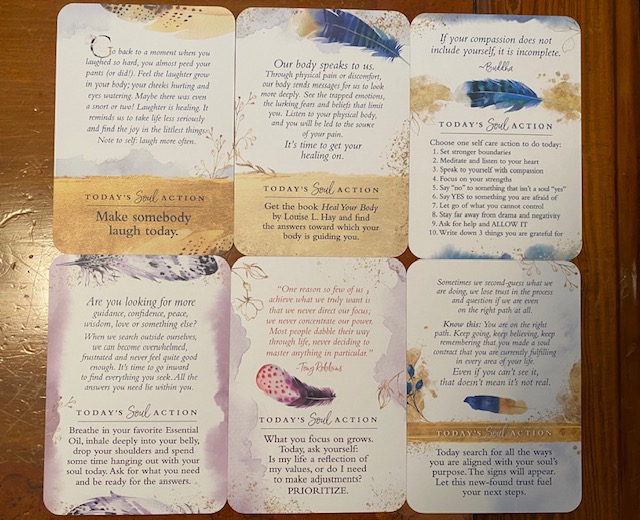 Go back to a moment when you
laughed so hard, you almost peed your
pants (or did!). Feel the laughter grow
in your body; your cheeks hurting and
eyes watering. Maybe there was even
a snort or two! Laughter is healing. It
reminds us to take life less seriously
and find the joy in the littlest things.
Note to self: laugh more often.
TODAY'S Soul ACTION
Make somebody
laugh today.
Our body speaks to us.
Through physical pain or discomfort,
our body sends messages for us to look
more deeply. See the trapped emotions,
the lurking fears and beliefs that limit
you. Listen to your physical body,
and you will be led to the source
of your pain.
It's time to get your
healing on.
TODAY'S Soul ACTION
Get the book Heal Your Body
by Louise L. Hay and find
the answers toward which your
body is guiding you.
If your compassion does not
include yourself, it is incomplete.
~Buddha
TODAY'S Soul ACTION
Choose one self care action to do today:
1. Set stronger boundaries
2. Meditate and listen to your heart
3. Speak to yourself with compassion
4. Focus on your strengths
5. Say "no" to something that isn't a soul "yes"
6. Say YES to something you are afraid of
7. Let go of what you cannot control
8. Stay far away from drama and negativity
9. Ask for help and ALLOW IT
10. Write down 3 things you are grateful for
Are you looking for more
guidance, confidence, peace,
wisdom, love or something else?
When we search outside ourselves,
we can become overwhelmed,
frustrated and never feel quite good
enough. It's time to go inward
to find everything you seek. All the
answers you need lie within you.
TODAY'S Soul ACTION
Breathe in your favorite Essential
Oil, inhale deeply into your belly,
drop your shoulders and spend
some time hanging out with your
soul today. Ask for what you need
and be ready for the answers.
"One reason so few of us
achieve what we truly want is
that we never direct our focus;
we never concentrate our power.
Most people dabble their way
through life, never deciding to
master anything in particular."
~Tony Robbins
TODAY'S Soul ACTION
What you focus on grows.
Today, ask yourself:
Is my life a reflection of
my values, or do I need
to make adjustments?
PRIORITIZE.
Sometimes we second-guess what we
are doing, we lose trust in the process
and question if we are even
on the right path at all.
Know this: You are on the right
path. Keep going, keep believing, keep
remembering that you made a soul
contract that you are currently fulfilling
in every area of your life.
Even if you can't see it,
that doesn't mean it's not real.
TODAY'S Soul ACTION
Today search for all the ways
you are aligned with your soul's
purpose. The signs will appear.
Let this new-found trust fuel
your next steps.